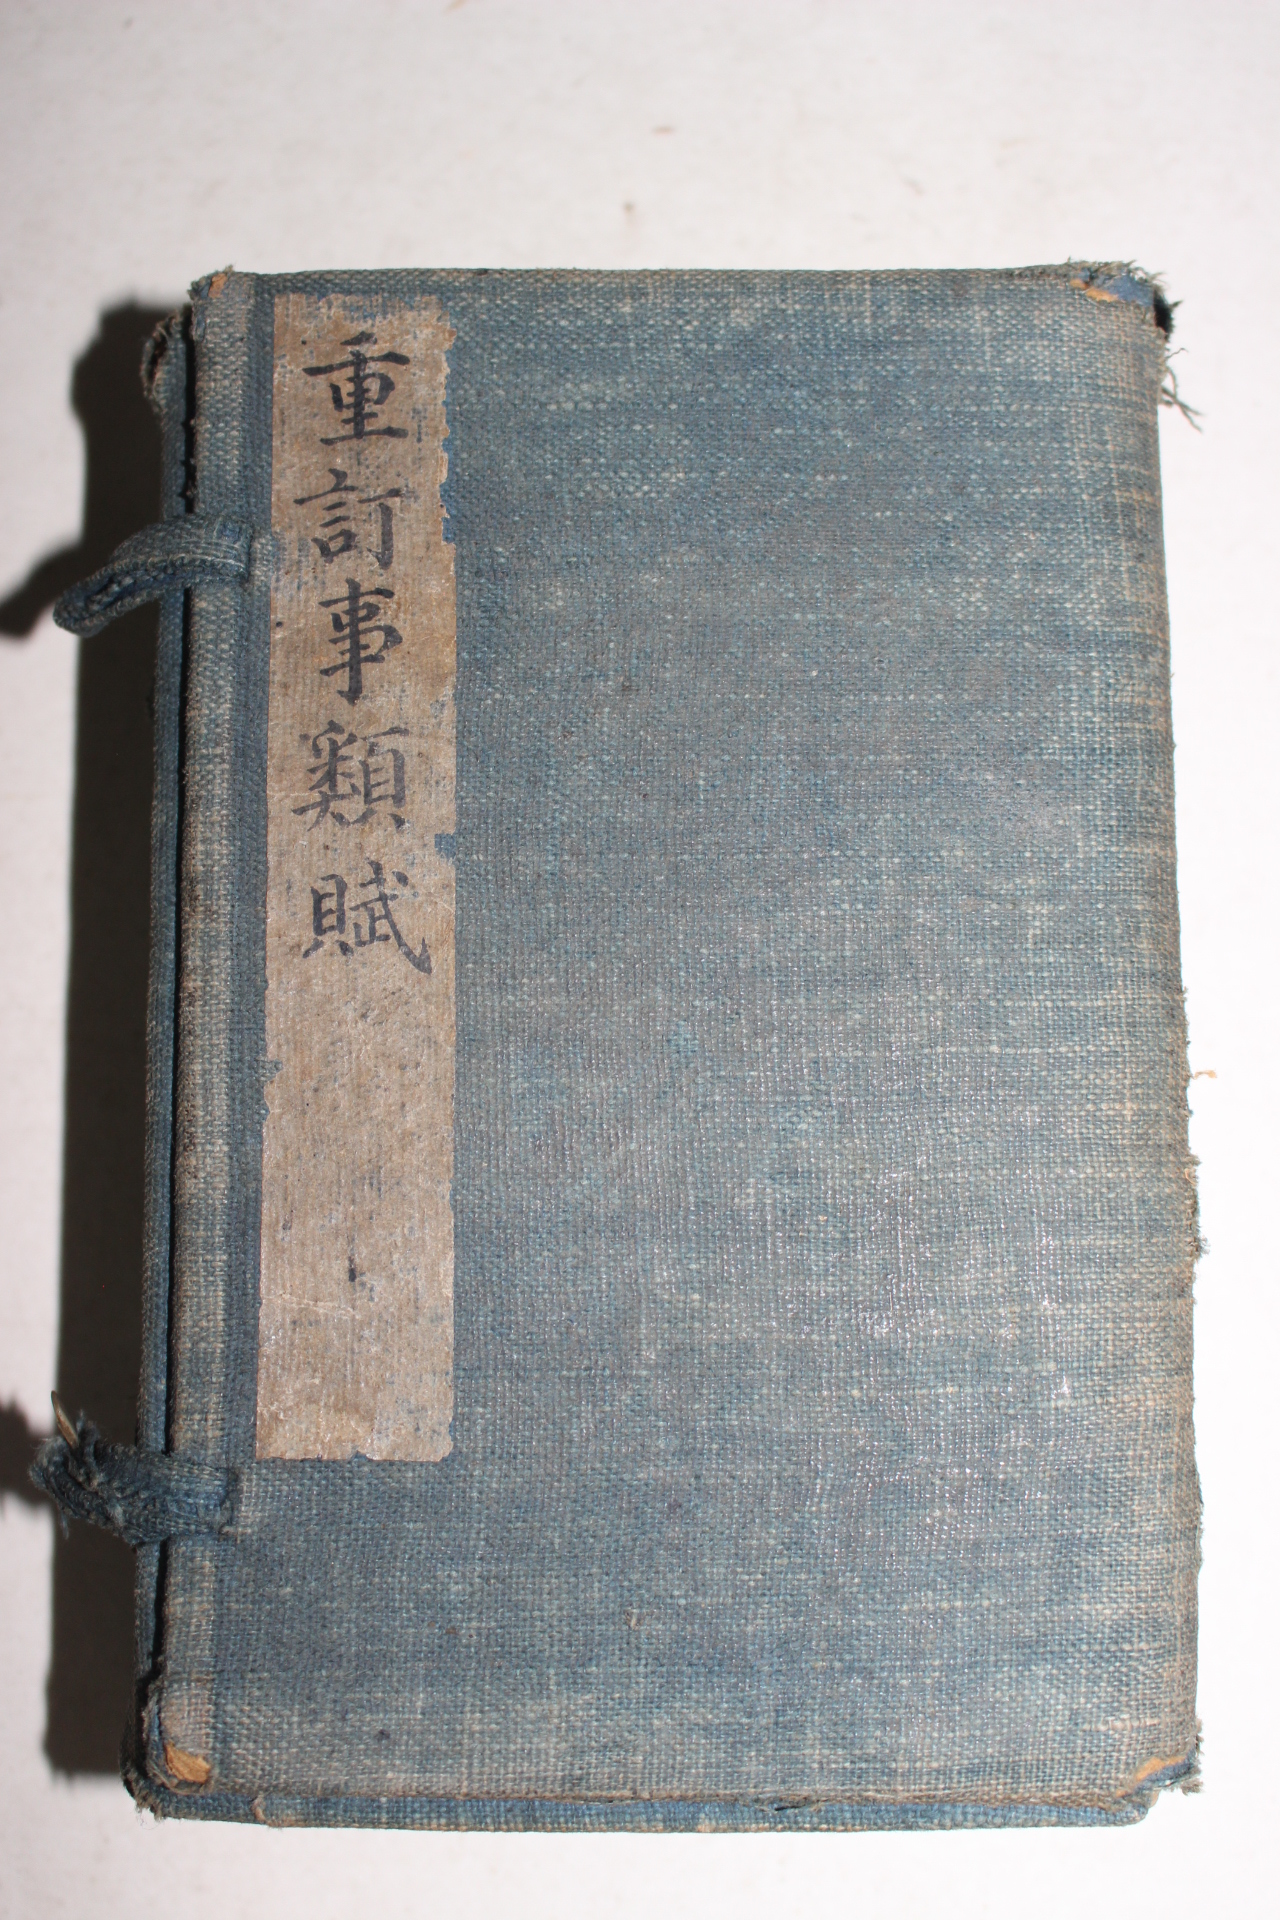 重訂事類賦